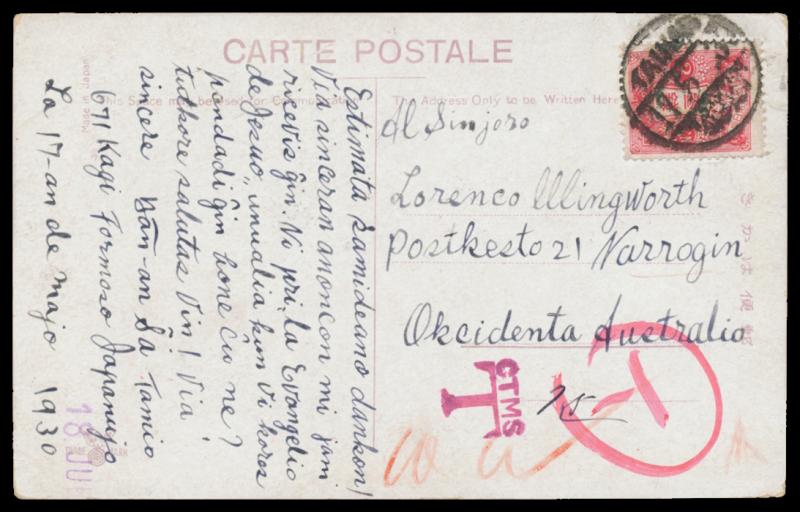 CARTE POSTALE
Made in Japan
This Space may be Used for Communication
The Address Only to be Written Here
Estimata samideano dankon!
Vi sinceran anoncon mi jam
ricevis ĝin. Ni pri „la Evangelio
de Jesuo„ unualia kun Vi kores
pondadi ĝin bone ĉu ne?
tutkore salutas Vin! Via
sincere
Tamio
671 Kagi Formoso Japanujo
La 17-an de majo 1930
Al Sinjoro
Lorenco Illingworth
Postkesto 21 Narrogin
Okcidenta Australio
きかは便郵
T
CTMS
T
18 JU